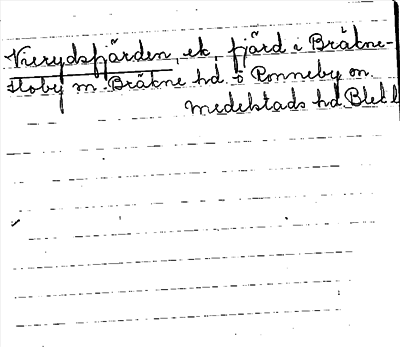 Vierydsfjärden, ek, fjärd i Bräkne-
Hoby sn. Bräkne hd. o Ronneby sn.
Medelstads hd. Blek l